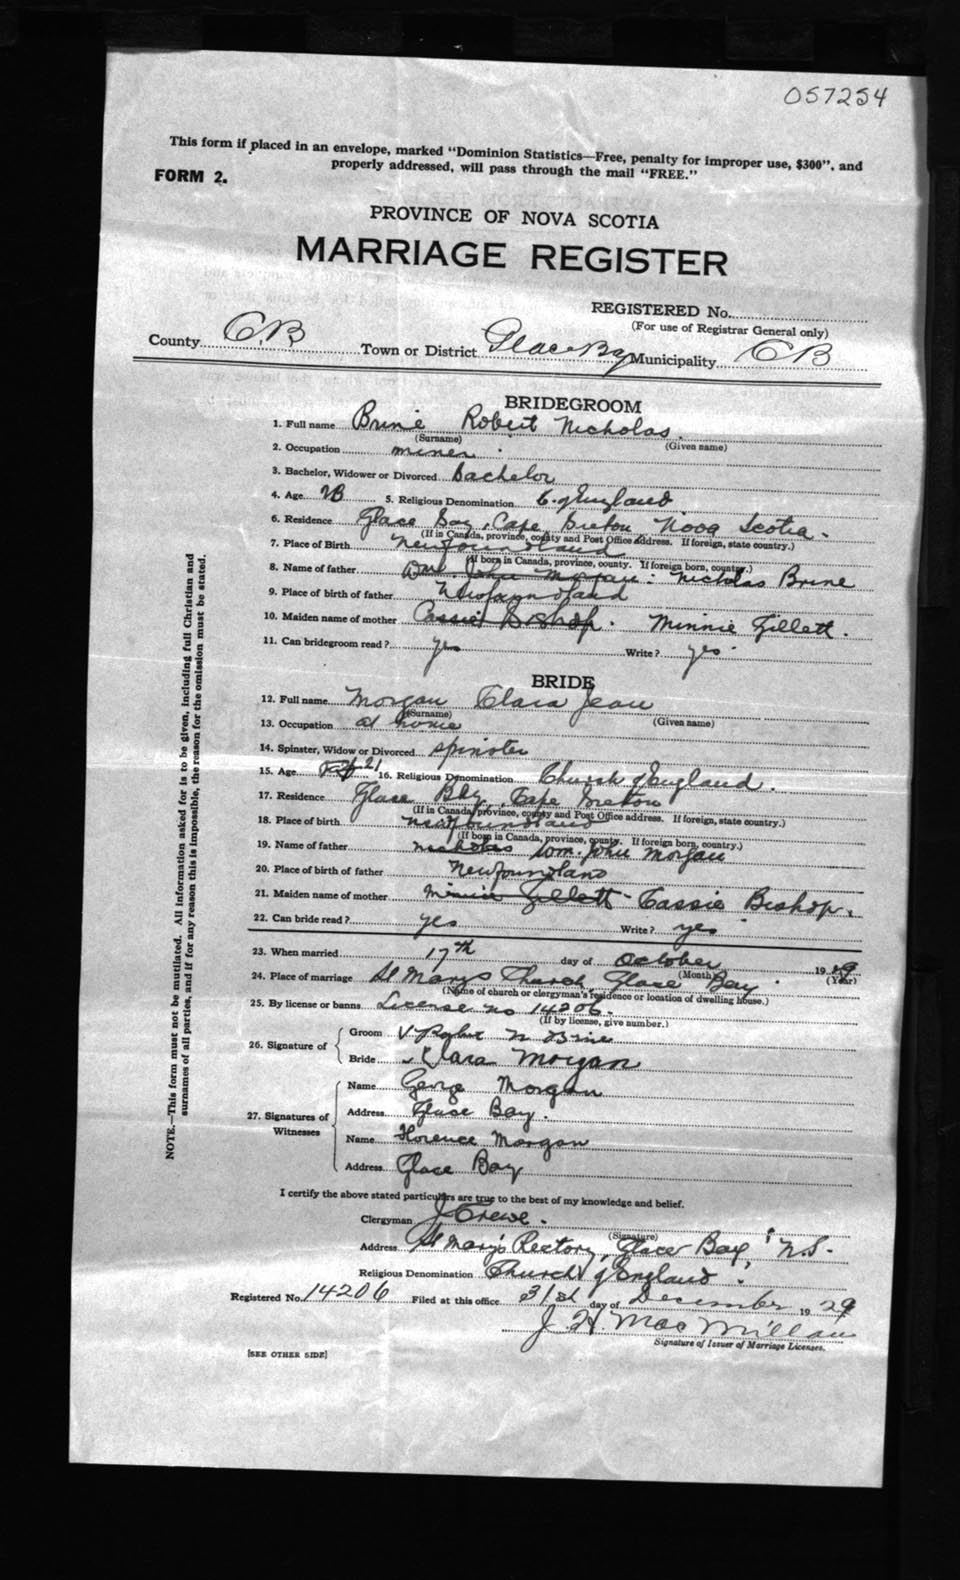 057254
This form if placed in an envelope, marked "Dominion Statistics—Free, penalty for improper use, $300", and
properly addressed, will pass through the mail "FREE."
FORM 2.
PROVINCE OF NOVA SCOTIA
MARRIAGE REGISTER
REGISTERED No.
(For use of Registrar General only)
County C.B Town or District Glace Bay Municipality C B
BRIDEGROOM
1. Full name Brine Robert Nicholas
(Surname) (Given name)
2. Occupation miner
3. Bachelor, Widower or Divorced Bachelor
4. Age 5. Religious Denomination C. of England
6. Residence Glace Bay, Cape Breton Nova Scotia.
(If in Canada, province, county and Post Office address. If foreign, state country.)
7. Place of Birth Newfoundland
(If born in Canada, province, county. If foreign born, country.)
8. Name of father Wm. John Morgan. Nicholas Brine
9. Place of birth of father Newfoundland
10. Maiden name of mother Cassie Bishop. Minnie Gillett.
11. Can bridegroom read? yes Write? yes
BRIDE
12. Full name Morgan Clara Jean
(Surname) (Given name)
13. Occupation at home
14. Spinster, Widow or Divorced spinster
15. Age 21 16. Religious Denomination Church of England.
17. Residence Glace Bay, Cape Breton
(If in Canada, province, county and Post Office address. If foreign, state country.)
18. Place of birth Newfoundland
(If born in Canada, province, county. If foreign born, country.)
19. Name of father Nicholas Wm. John Morgan
20. Place of birth of father Newfoundland
21. Maiden name of mother Minnie Gillett - Cassie Bishop.
22. Can bride read? yes Write? yes
23. When married 17th day of October 1929
(Month) (Year)
24. Place of marriage St Mary's Church, Glace Bay
(Name of church or clergyman's residence or location of dwelling house.)
25. By license or banns License no 14206.
(If by license, give number.)
26. Signature of
Groom Robert N Brine
Bride Clara Morgan
27. Signatures of Witnesses
Name George Morgan
Address Glace Bay.
Name Florence Morgan
Address Glace Bay
I certify the above stated particulars are true to the best of my knowledge and belief.
Clergyman J Crewe.
(Signature)
Address St Mary's Rectory, Glace Bay, N.S.
Religious Denomination Church of England.
Registered No. 14206 Filed at this office 31st day of December 1929
J. H. MacMillan
Signature of Issuer of Marriage Licenses.
[SEE OTHER SIDE]
NOTE.—This form must not be mutilated. All information asked for is to be given, including full Christian and
surnames of all parties, and if for any reason this is impossible, the reason for the omission must be stated.